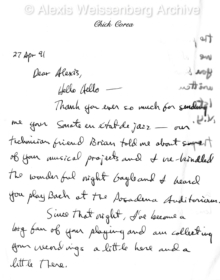 © Alexis Weissenberg Archive
Chick Corea
27 Apr 91
Dear Alexis,
Hello Hello —
Thank you ever so much for sending
me your Sonate en état de jazz — our
technician friend Brian told me about some
of your musical projects and I re-kindled
the wonderful night Gayle and I heard
you play Bach at the Ambassador Auditorium.
Since that night, I've become a
big fan of your playing and am collecting
your recordings a little here and a
little there.